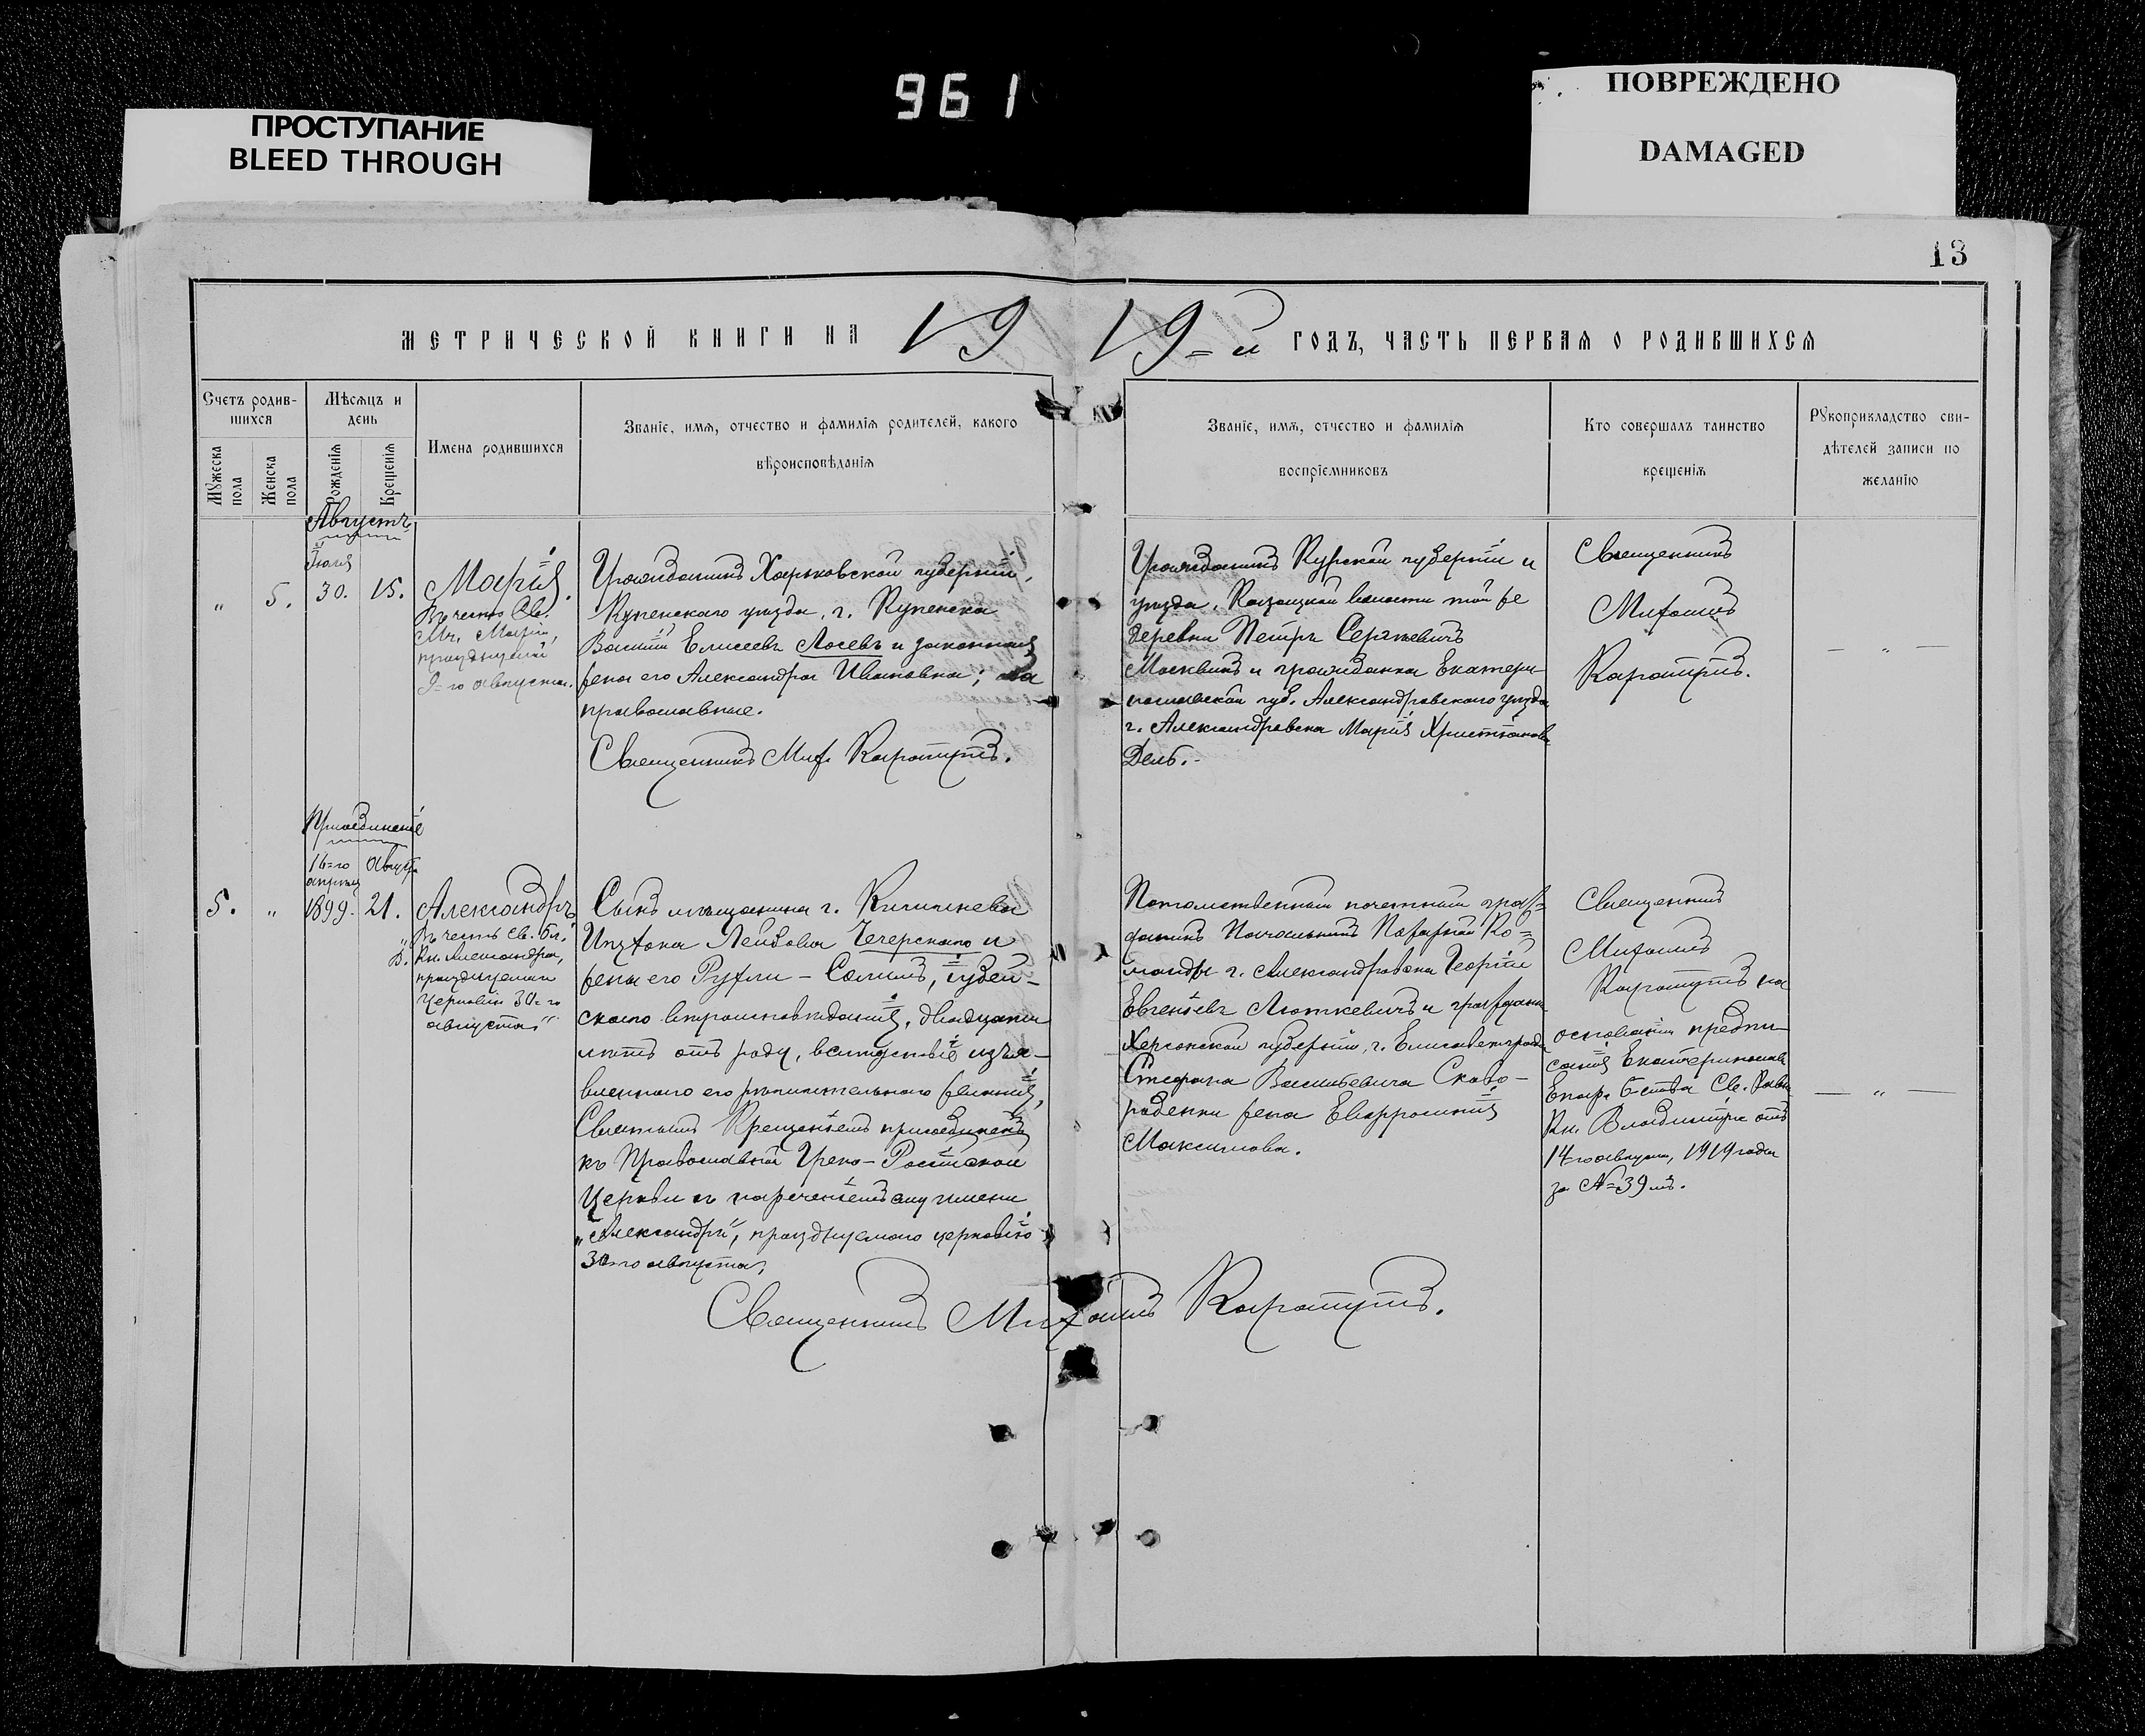 961
ПРОСТУПАНИЕ
BLEED THROUGH
ПОВРЕЖДЕНО
DAMAGED
13
МЕТРИЧЕСКОЙ КНИГИ НА 19
19=й ГОДЪ, ЧАСТЬ ПЕРВАЯ О РОДИВШИХСЯ
Счетъ родив-
шихся
Мужеска
пола
Женска
пола
Мѣсяцъ и
день
Рожденія
Крещенія
Имена родившихся
Званіе, имя, отчество и фамилія родителей, какого
вѣроисповѣданія
Званіе, имя, отчество и фамилія
воспріемниковъ
Кто совершалъ таинство
крещенія
Рукоприкладство сви-
дѣтелей записи по
желанію
Августъ
Іюля
" 5. 30. 15.
Марія.
Въ честь Св.
Мч. Маріи,
празднуемой
9=го августа.
Гражданинъ Харьковской губерніи,
Купенскаго уѣзда, г. Купенска
Василій Елисеевъ Лосевъ и законная
жена его Александра Ивановна; оба
православные.
Священникъ Мих. Каратутъ.
Гражданинъ Курской губерніи и
уѣзда, Казацкой волости той же
деревни Петръ Сергѣевичъ
Москвинъ и гражданка Екатери-
нославской губ. Александровскаго уѣзда,
г. Александровска Марія Христіанова
Дель.-
Священникъ
Михаилъ
Каратутъ.
— " —
Присоединеніе
16=го апрѣля
1899.
Август
21.
5. "
Александръ
"въ честь Св. Бл.
В. Кн. Александра,
празднуемаго
Церковію 30=го
августа"
Сынъ мѣщанина г. Кишинева
Ицхока Лейбова Чечерскаго и
жены его Рухли-Солимъ, іудей-
скаго вѣроисповѣданія, двадцати
лѣтъ отъ роду, вслѣдствіе изъя-
вленнаго его рѣшительнаго желанія,
Святымъ Крещеніемъ присоединенъ
къ Православной Греко-Россійской
Церкви съ нареченіемъ ему имени
"Александръ", празднуемаго церковію
30=го августа.
Потомственный почетный граж=
данинъ Начальникъ Пожарной Ко=
манды г. Александровска Георгій
Евгеніевъ Люткевичъ и гражданина
Херсонской губерніи, г. Елисаветграда
Стефана Васильевича Сково-
роденки жена Евфросинія
Максимова.
Священникъ
Михаилъ
Каратутъ на
основаніи предпи-
санія Екатеринослав.
Епарх. Б-ства Св. Равн.
Кн. Владиміра отъ
14=го августа, 1919 года
за №=39мъ.
— " —
Священникъ Михаилъ Каратутъ.